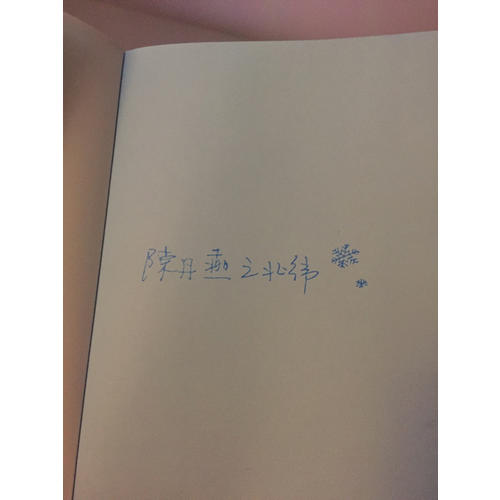 陳丹燕之北纬